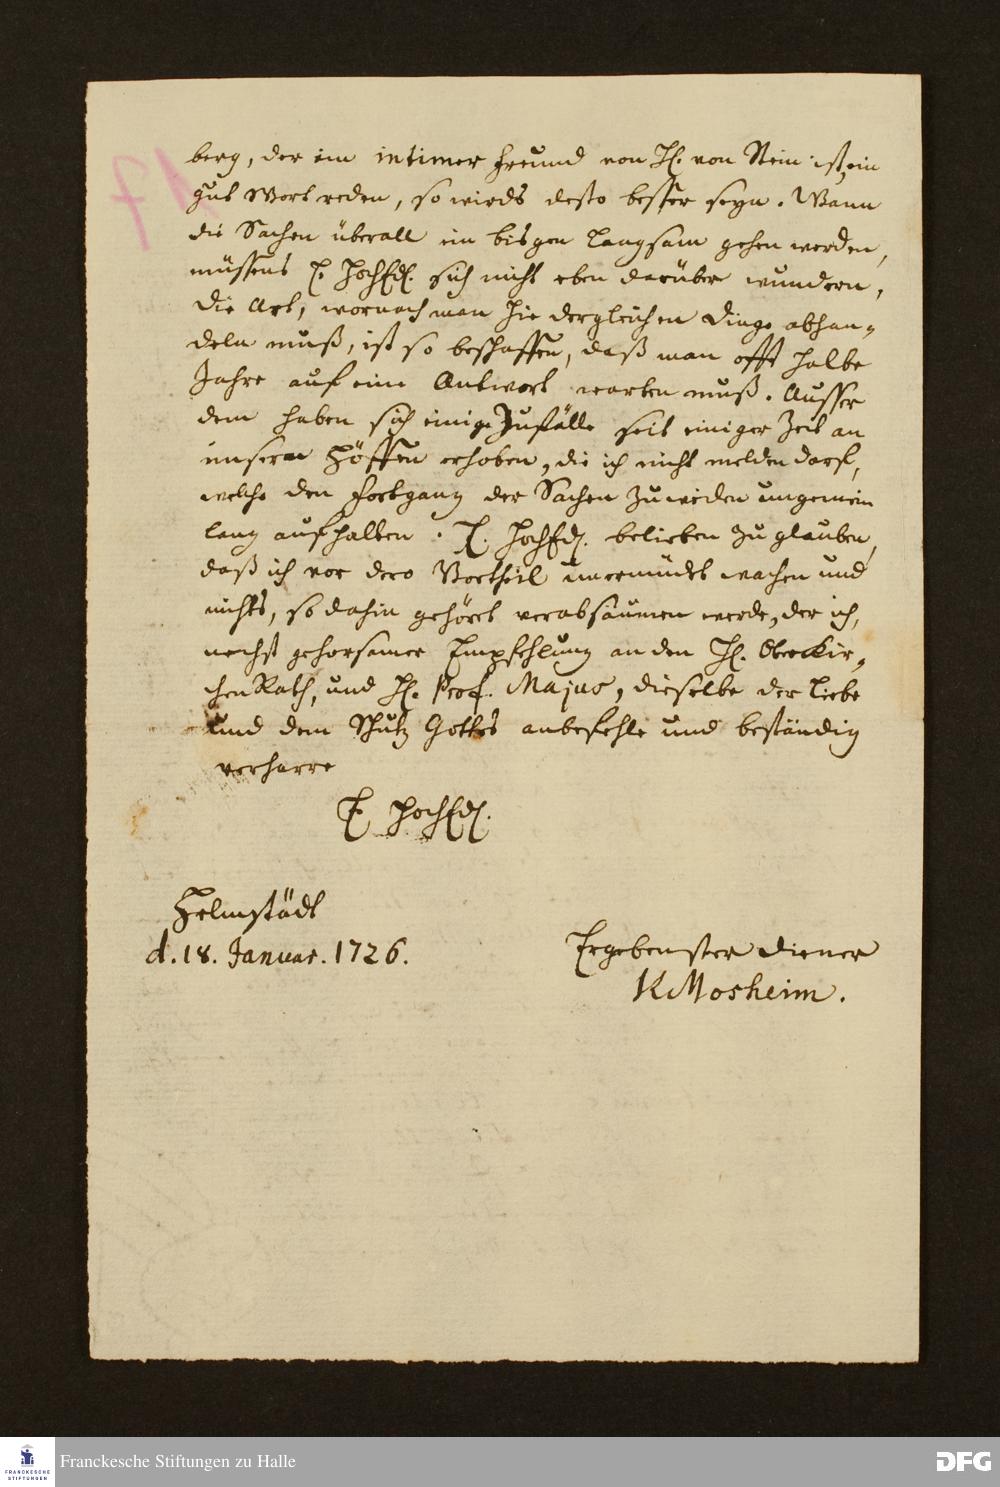 berg, der ein intimer Freund von H. von Stein ist, ein
gut Wort reden, so wirds desto besser seyn. Wann
die Sachen überall ein bisgen langsam gehen werden,
müssens E. HochEd. sich nicht eben darüber wundern,
Die Art, wornach man hie dergleichen Dinge abhan-
deln muß, ist so beschaffen, daß man offt halbe
Jahre auf eine Antwort warten muß. Ausser
dem haben sich einige Zufälle seit einiger Zeit an
unserm Höffen erhoben, die ich nicht melden darf,
welche den Fortgang der Sachen zuweilen ungemein
lang aufhalten. E. HochEd. belieben zu glauben,
daß ich vor dero Vortheil unermüdet wachen und
nichts, so dahin gehöret verabsäumen werde, der ich,
nechst gehorsamer Empfehlung an den H. OberKir-
chenRath, und H. Prof. Majus, dieselbe der Liebe
und dem Schutz Gottes anbefehle und beständig
verharre
E. HochEd.
Helmstädt
d. 18. Januar. 1726.
Ergebenster Diener
Mosheim.
17
Franckesche Stiftungen zu Halle
FRANCKESCHE
STIFTUNGEN
DFG